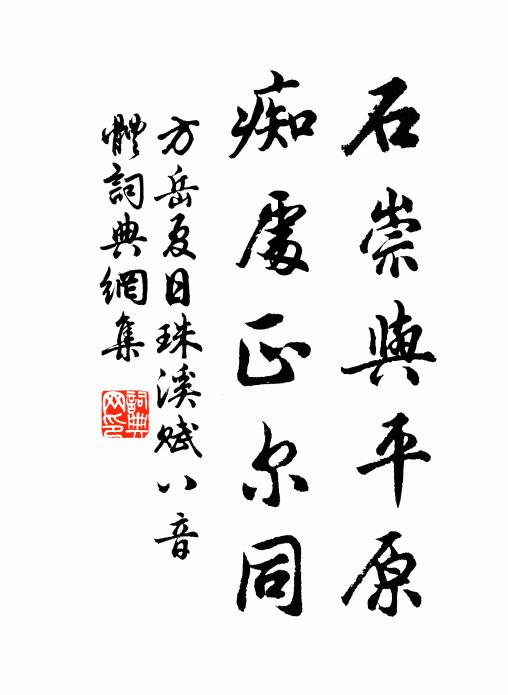 石崇與平原
痴處正尔同
方岳夏日珠溪賦八音
體詞典網集
詞典网印